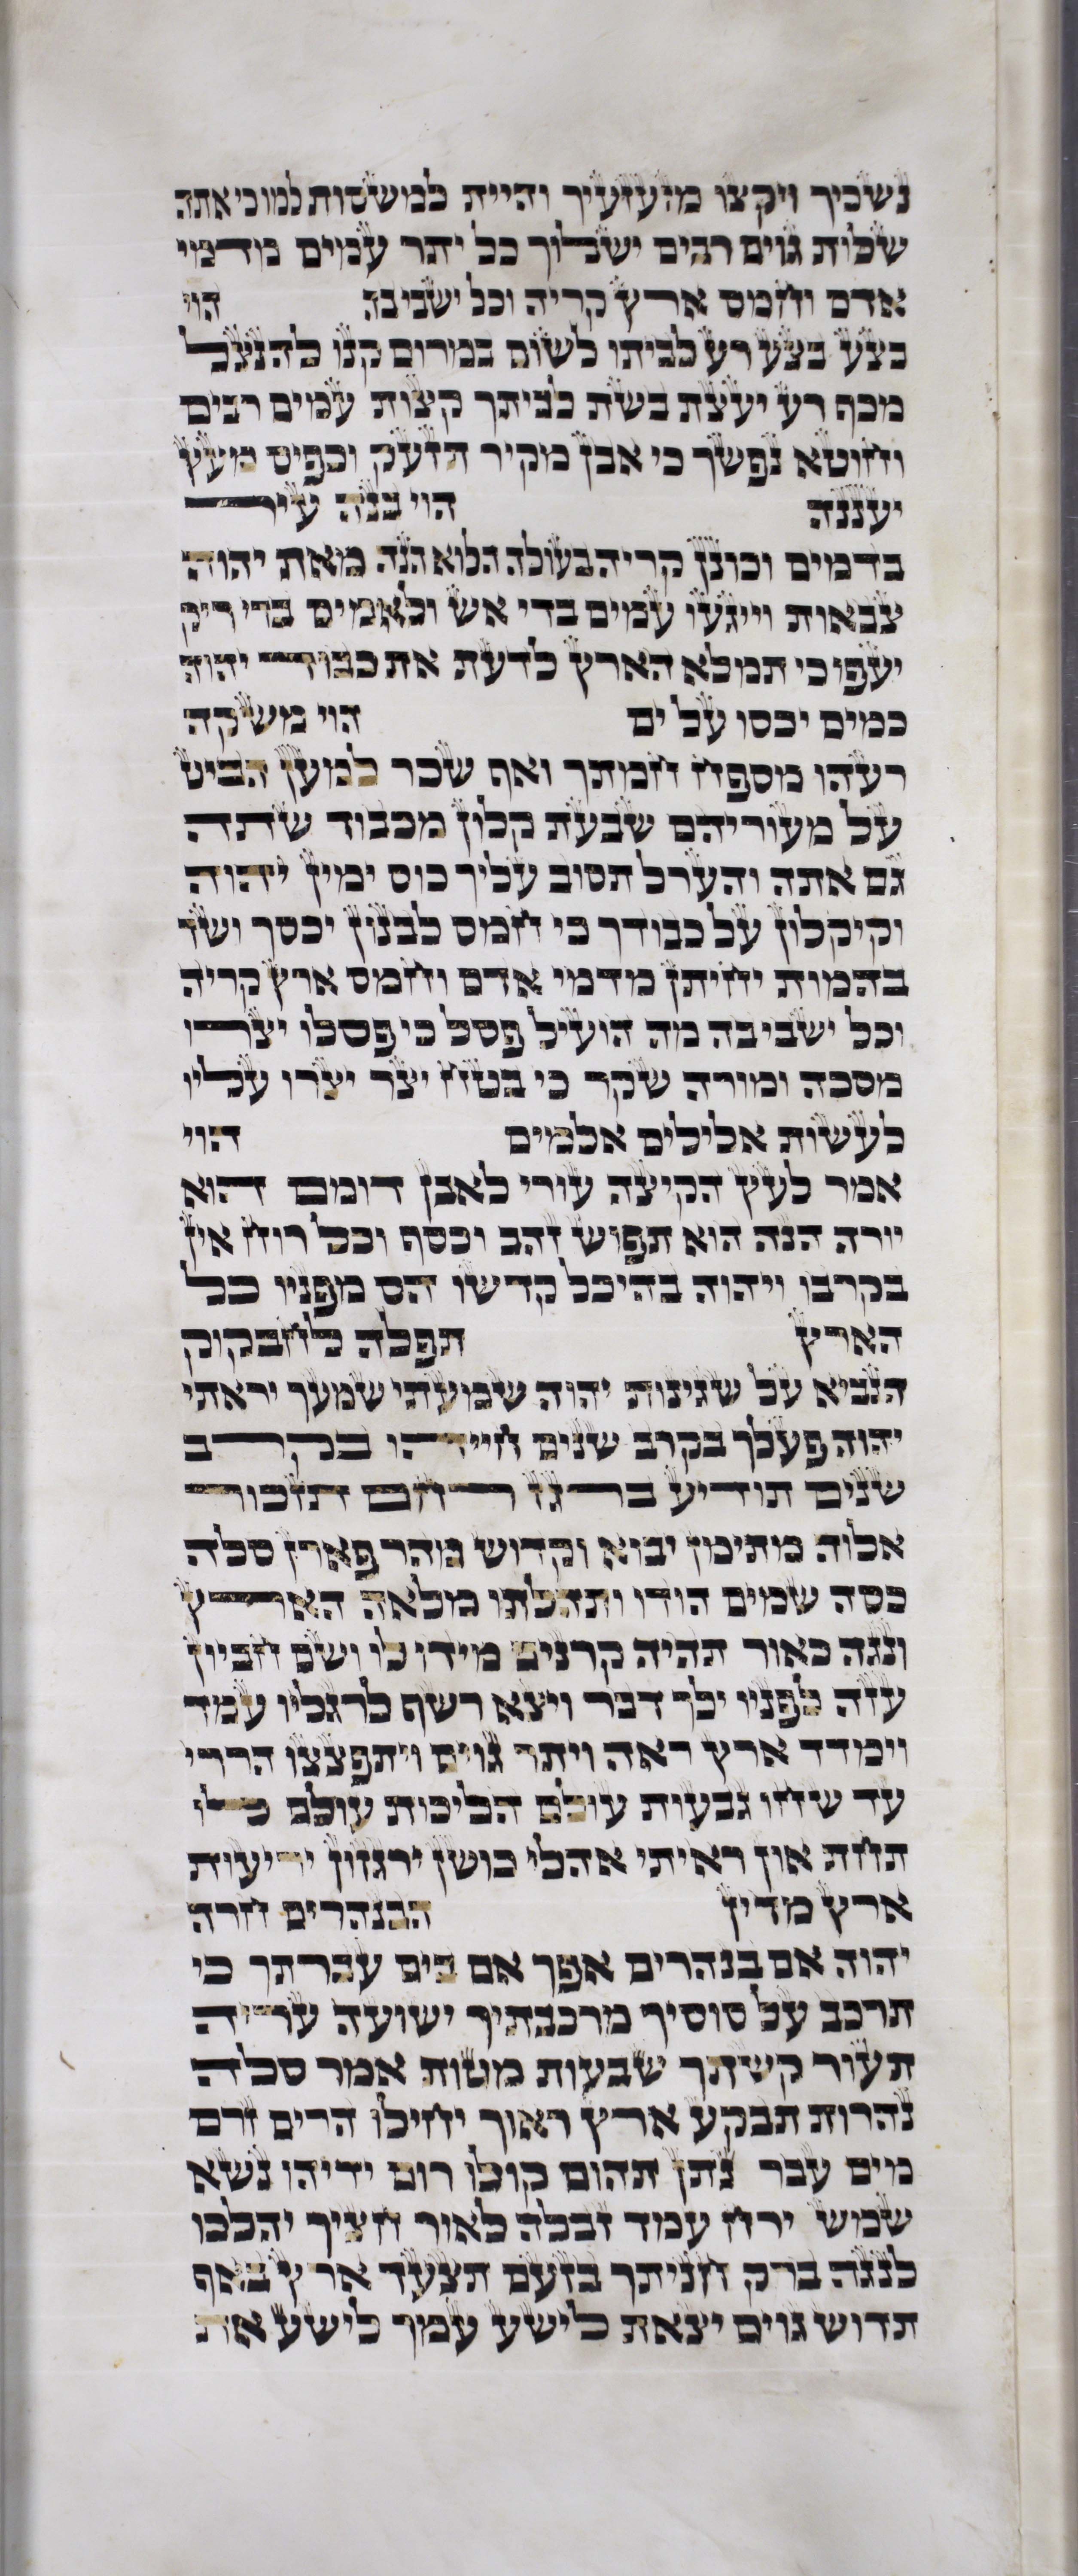 נשכיך ויקצו מזעזעיך והיית למשסות למו כי אתה
שלות גוים רבים ישלוך כל יתר עמים מדמי
אדם וחמס ארץ קריה וכל ישבי בה הוי
בצע בצע רע לביתו לשום במרום קנו להנצל
מכף רע יעצת בשת לביתך קצות עמים רבים
וחוטא נפשך כי אבן מקיר תזעק וכפיס מעץ
יעננה הוי בנה עיר
בדמים וכונן קריה בעולה הלוא הנה מאת יהוה
צבאות וייגעו עמים בדי אש ולאמים בדי ריק
יעפו כי תמלא הארץ לדעת את כבוד יהוה
כמים יכסו על ים הוי משקה
רעהו מספח חמתך ואף שכר למען הביט
על מעוריהם שבעת קלון מכבוד שתה
גם אתה והערל תסוב עליך כוס ימין יהוה
וקיקלון על כבודך כי חמס לבנון יכסך ושד
בהמות יחיתן מדמי אדם וחמס ארץ קריה
וכל ישבי בה מה הועיל פסל כי פסלו יצרו
מסכה ומורה שקר כי בטח יצר יצרו עליו
לעשות אלילים אלמים הוי
אמר לעץ הקיצה עורי לאבן דומם הוא
יורה הנה הוא תפוש זהב וכסף וכל רוח אין
בקרבו ויהוה בהיכל קדשו הס מפניו כל
הארץ תפלה לחבקוק
הנביא על שגינות יהוה שמעתי שמעך יראתי
יהוה פעלך בקרב שנים חייהו בקרב
שנים תודיע ברגז רחם תזכור
אלוה מתימן יבוא וקדוש מהר פארן סלה
כסה שמים הודו ותהלתו מלאה הארץ
ונגה כאור תהיה קרנים מידו לו ושם חביון
עזה לפניו ילך דבר ויצא רשף לרגליו עמד
וימדד ארץ ראה ויתר גוים ויתפצצו הררי
עד שחו גבעות עולם הליכות עולם לו
תחת און ראיתי אהלי כושן ירגזון יריעות
ארץ מדין הבנהרים חרה
יהוה אם בנהרים אפך אם בים עברתך כי
תרכב על סוסיך מרכבתיך ישועה עריה
תעור קשתך שבעות מטות אמר סלה
נהרות תבקע ארץ ראוך יחילו הרים זרם
מים עבר נתן תהום קולו רום ידיהו נשא
שמש ירח עמד זבלה לאור חציך יהלכו
לנגה ברק חניתך בזעם תצעד ארץ באף
תדוש גוים יצאת לישע עמך לישע את